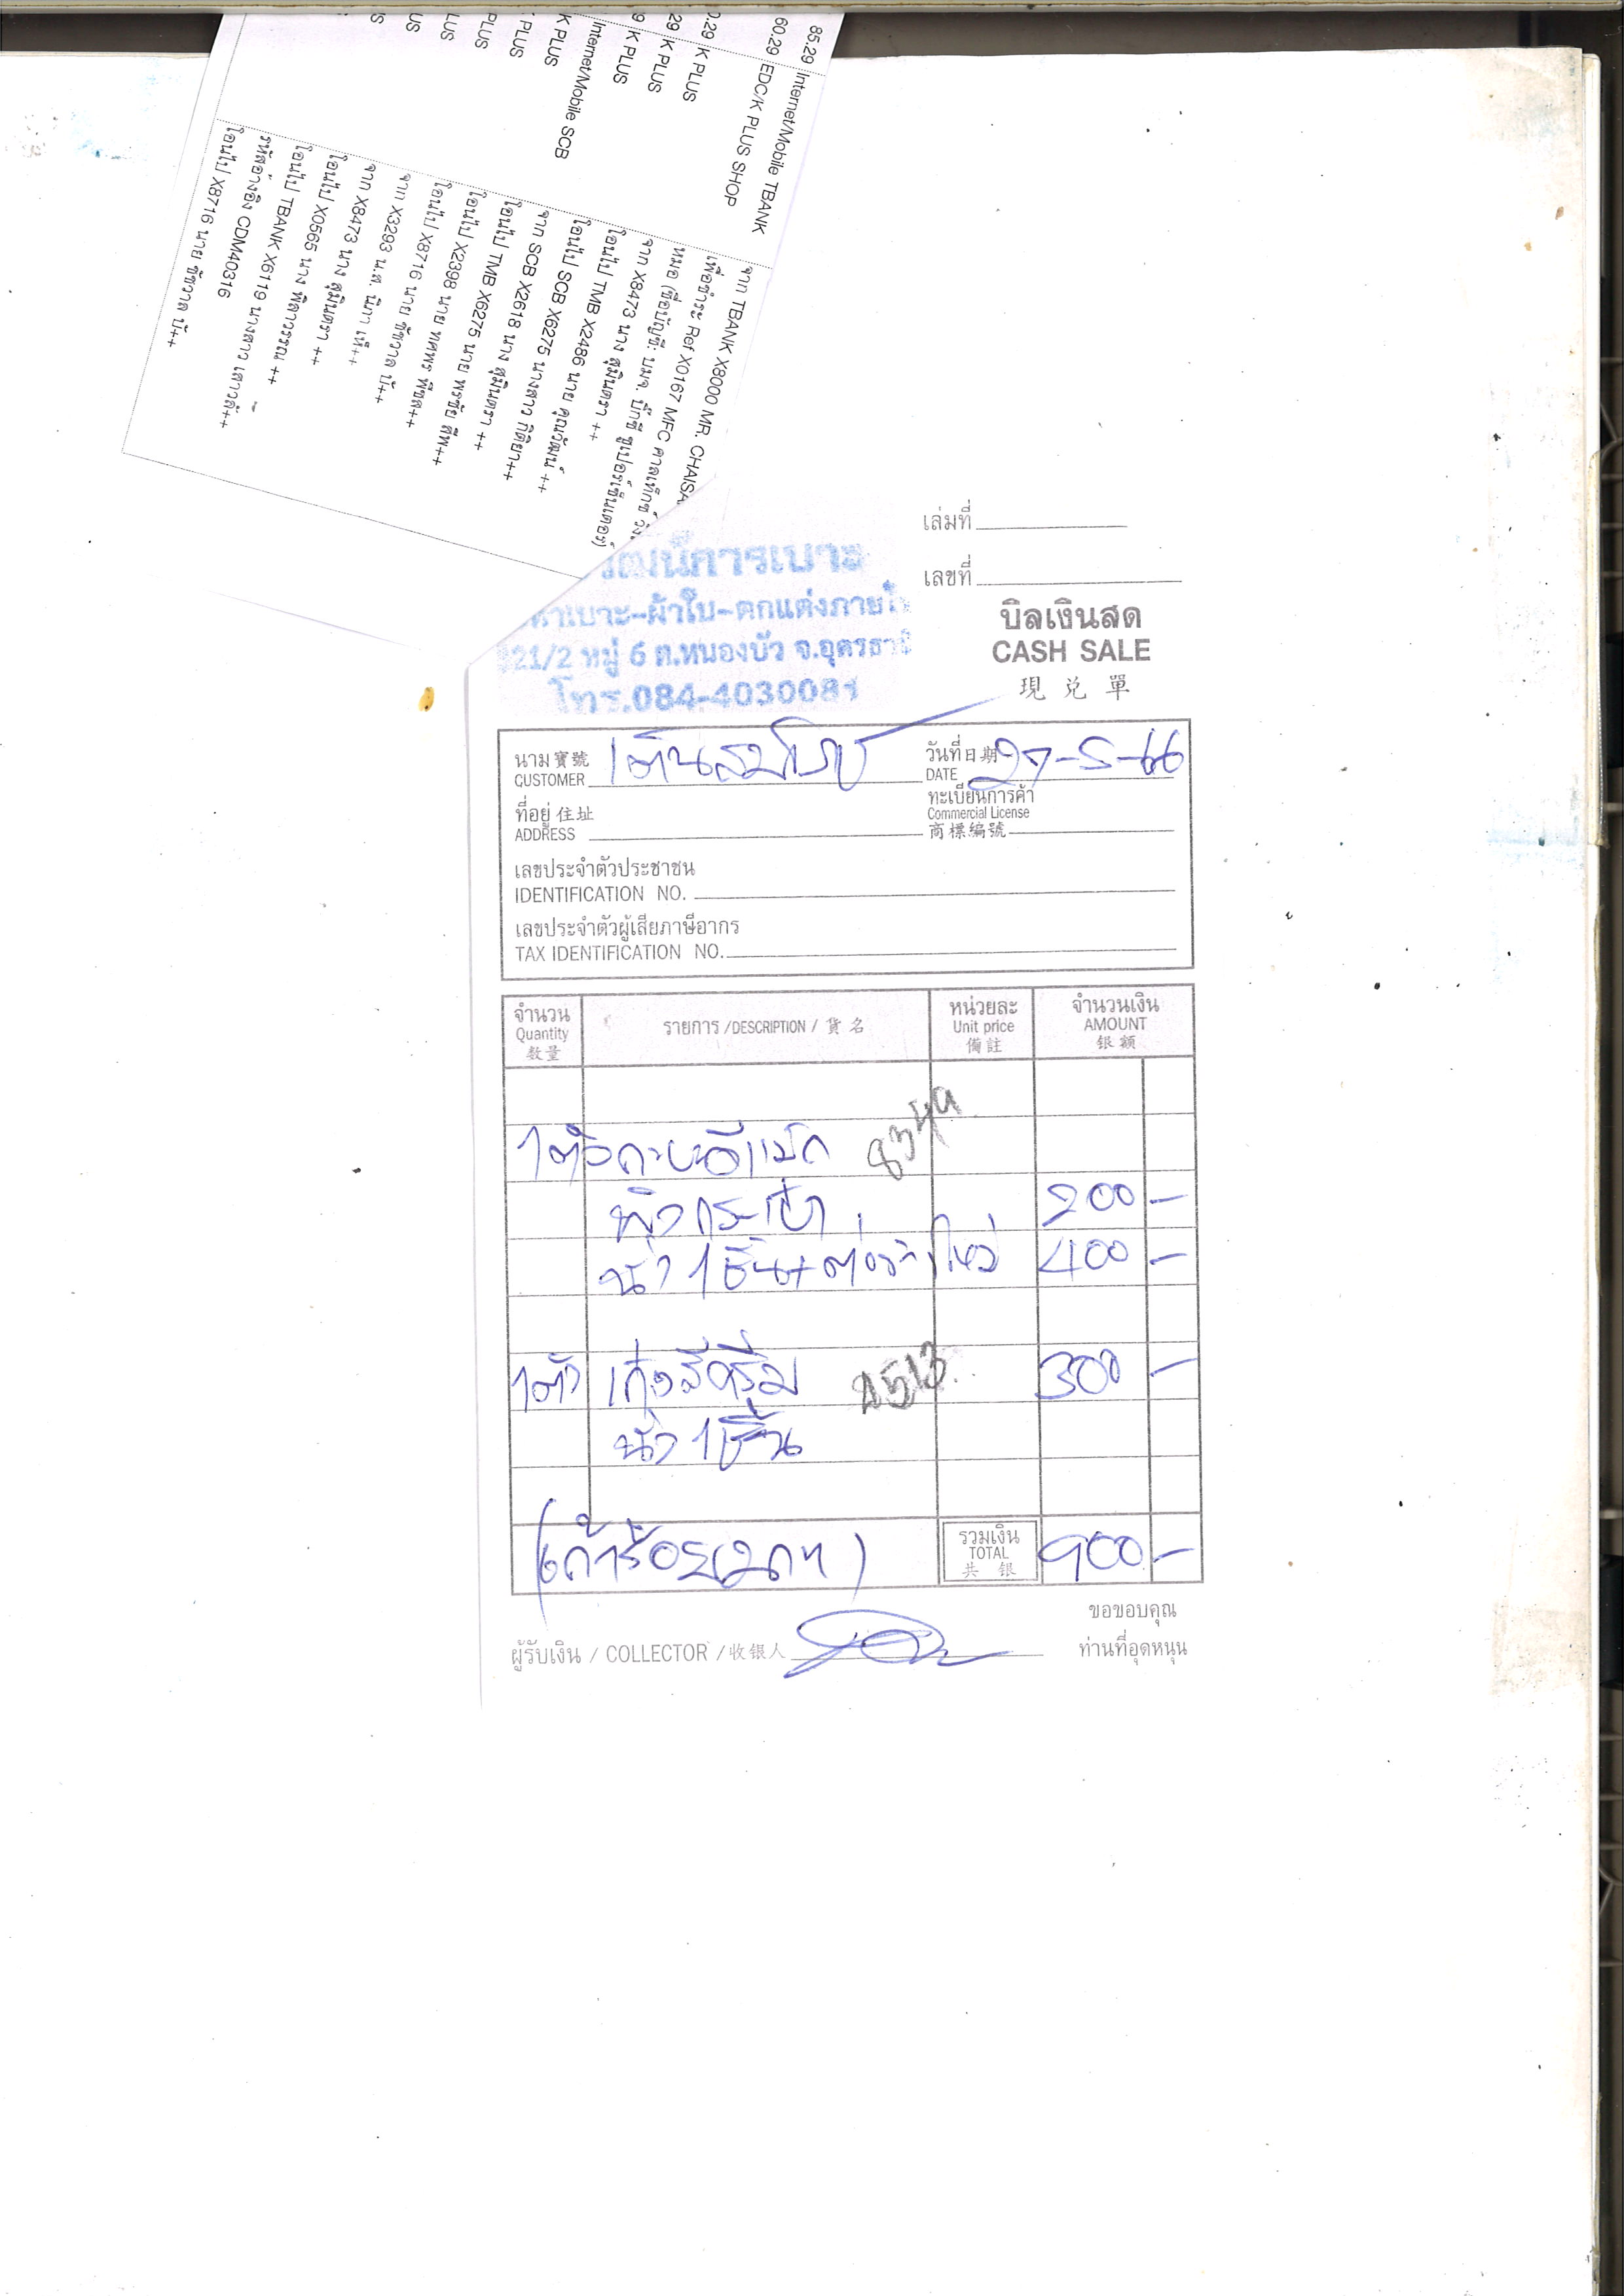 85.29 Internet/Mobile TBANK
จาก TBANK X8000 MR. CHAISA
60.29 EDC/K PLUS SHOP
เพื่อชำระ Ref X0167 MFC
(ชื่อบัญชี: บมจ. บิ๊กซี ซูเปอร์เซ็นเตอร์)
0.29 K PLUS
จาก X8473 นาง สุมินตรา ++
29 K PLUS
โอนไป TMB X2486 นาย คุณวัฒน์ ++
9 K PLUS
โอนไป SCB X6275 นางสาว กิติยา++
Internet/Mobile SCB
จาก SCB X2618 นาง สุมินตรา ++
K PLUS
โอนไป TMB X6275 นาย พรชัย ++
PLUS
โอนไป X2398 นาย ทศพร ++
PLUS
โอนไป X8716 นาย ชัชวาล ++
LUS
จาก X3293 น.ส. นิภา ++
US
จาก X8473 นาง สุมินตรา ++
US
โอนไป X0565 นาง พิลาวรรณ ++
โอนไป TBANK X6119 นางสาว ++
รหัสอ้างอิง CDM40316
โอนไป X8716 นาย ชัชวาล ++
เล่มที่
เลขที่
วัฒน์การเบาะ
เบาะ-ผ้าใบ-ตกแต่งภายใ
21/2 หมู่ 6 ต.หนองบัว จ.อุดรธานี
โทร.084-4030081
บิลเงินสด
CASH SALE
現兌單
นาม 寶號 เต็นสมโภช วันที่ 日期 27-5-66
CUSTOMER DATE
ที่อยู่ 住址 ทะเบียนการค้า
ADDRESS Commercial License
商標編號
เลขประจำตัวประชาชน
IDENTIFICATION NO.
เลขประจำตัวผู้เสียภาษีอากร
TAX IDENTIFICATION NO.
จำนวน รายการ /DESCRIPTION / 貨名 หน่วยละ จำนวนเงิน
Quantity Unit price AMOUNT
数量 備註 银额
1 ตัว กะบะดีแม็ก
พิงกระเป๋า 200 -
นั่ง 1 ชิ้น+ ใหม่ 400 -
1 ตัว เก๋งสีครีม 4513 300 -
นั่ง 1 ชิ้น
(เก้าร้อยบาท) รวมเงิน 900 -
TOTAL
共银
ขอขอบคุณ
ผู้รับเงิน / COLLECTOR / 收银人 ท่านที่อุดหนุน